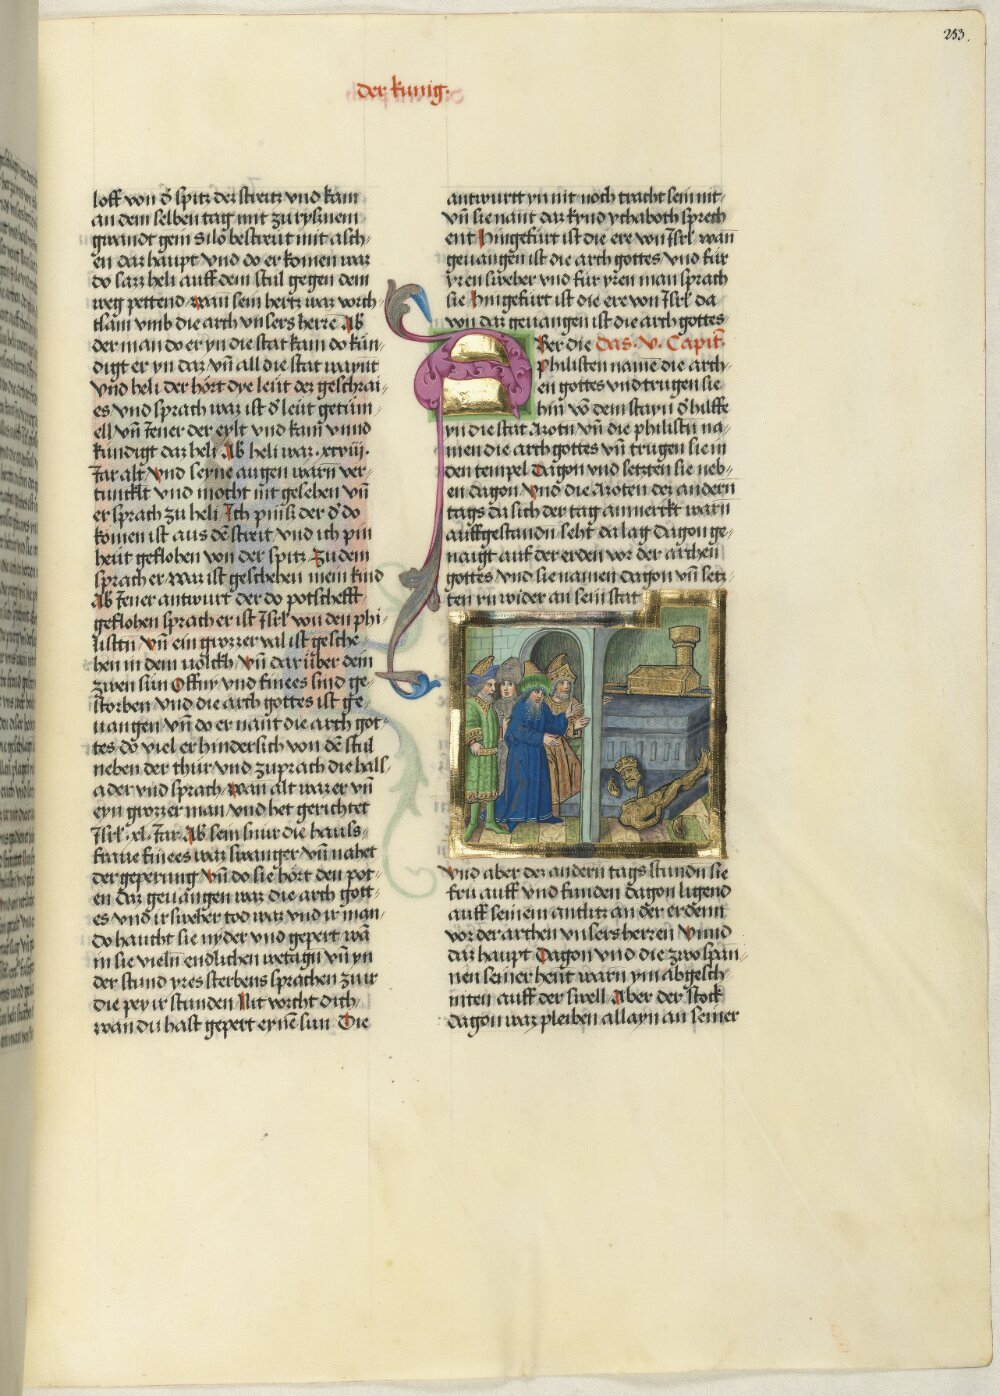 253.
der kunig.
loff von d̄ spitz der streitz vnd kam
an dem selben tag mit zu ryssinem
gwandt gein Silo bestreut mit asch-
en daz haupt Vnd do er komen waz
do saz heli auff dem stul gegen dem
weg pettend wan sein hertz waz vorch-
tsam vmb die arch vnsers herre Ab
der man do er yn die stat kam do kün-
digt er yn daz vn̄ all die stat waynt
Vnd heli der hört dye leut der geschrai-
es vnd sprach waz ist d̄ leut getüm-
ell vn̄ Jener der eylt vnd kam vnnd
kundigt daz heli Ab heli waz .xcviij.
Jar alt vnd seyne augen warn ver-
tunckelt vnd mocht nit gesehen vn̄
er sprach zu heli Ich pins der d̄ do
komen ist aus dē streit vnd ich pin
heut geflohen von der spitz Zu dem
sprach er waz ist geschehen mein kind
Ab Jener antwurt der do potschefft
geflohen sprach er ist Jsrl von den phi-
listin Vn̄ ein grozzer val ist gesche-
hen in dem völckh vn̄ dar über dem
zwen sun Offny vnd finees sind ge-
storben vnd die arch gottes ist ge-
uangen vn̄ do er nant die arch got-
tes do viel er hindersich von dē stul
neben der thür vnd zuprach die hals-
ader vnd sprach wan alt waz er vn̄
eyn grozzer man vnd het gerichtet
Jsrl .xl. Jar Ab sein snur die hauss-
fraue finees waz swanger vn̄ nahet
der geperung vn̄ do sie hört den pot-
en daz geuangen waz die arch gott-
es vnd ir sweher tod waz vnd ir man-
do haucht sie nyder vnd gepert wā
in sie vieln endlichen wetagn vn̄ yn
der stund yres sterbens sprachen zuir
die pey ir stunden Nit vorcht dich
wan du hast gepert eynē sun Die
antwurtt yn nit noch tracht sem nit-
vn̄ sie nant daz kynd ychaboth sprech
ent Hingefurt ist die ere von Jsrl wan
geuangen ist die arch gottes vnd für
yren sweher vnd für yrēn man sprach
sie Hingefürt ist die ere von Jsrl da
von daz geuangen ist die arch gottes
Ber die das .v. Capit̄.
Philisten namē die arch-
en gottes vnd trugen sie
hin vō dem stayn d̄ hilffe
yn die stat Azotū vn̄ die philistin na-
men die arch gottes vn̄ trugen sie in
den tempel Dagon vnd setzten sie neb-
en dagon vnd die Azoten der andern
tags da sich der tag anmerckt warn
auffgestandn seht da lag Dagon ge-
naigt auf der erden vor der archen
gottes vnd sie namen Dagon vn̄ setz-
ten yn wider an sein stat
Vnd aber der andern tags stundn sie
fru auff vnd funden Dagon ligend
auff seinem antlitz an der erdenn
vor der archen vnsers herren Vnnd
daz haupt Dagon vnd die zwo span-
nen seiner hent warn ym abgesch-
niten auff der swell Aber der stock
Dagon waz pleiben allayn an seiner